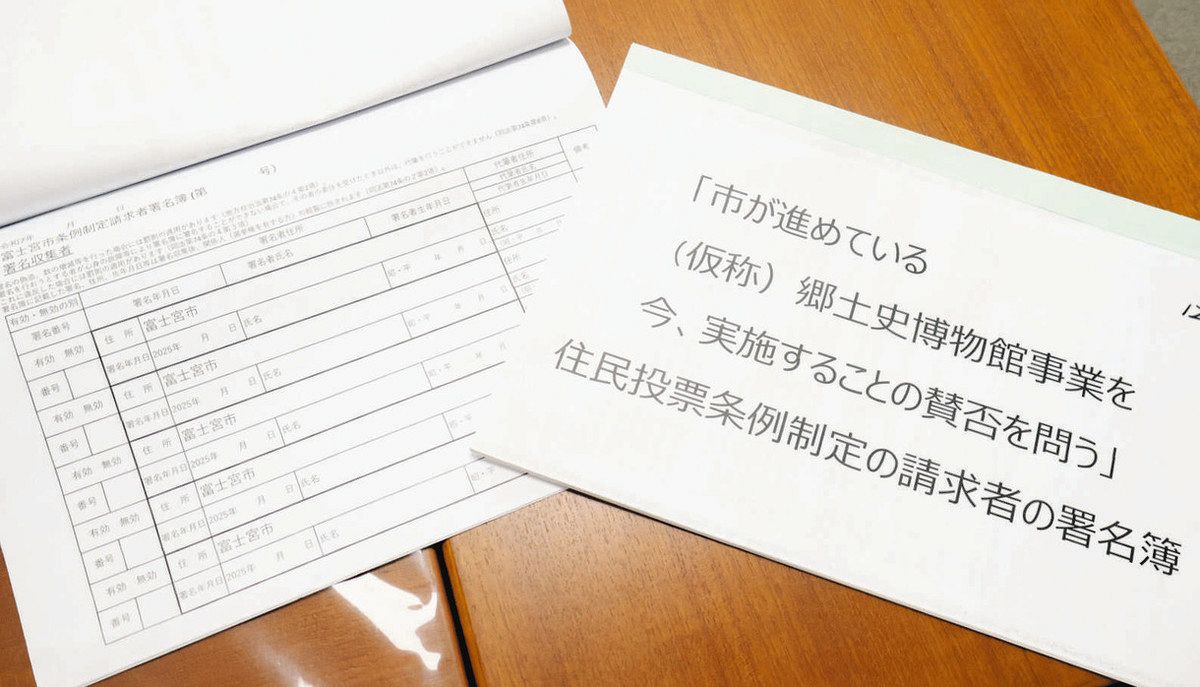 号)
月　日
富士宮市条例制定請求者署名簿 (第
署名収集者
代筆者住所
代筆者氏名
代筆者生年月日
備考
有効・無効の別
署名番号
署名年月日
署名者住所
署名者氏名
署名者生年月日
有効　無効
番号
住　所　富士宮市
署名年月日 2025年　月　日　氏名
昭・平　年　月　日
有効　無効
番号
住　所　富士宮市
署名年月日 2025年　月　日　氏名
昭・平　年
有効　無効
番号
住　所　富士宮市
署名年月日 2025年　月　日　氏名
昭・平
有効　無効
番号
住　所　富士宮市
署名年月日 2025年　月　日　氏名
昭・
有効　無効
番号
住　所　富士宮市
署名年月日 2025年　月　日　氏名
「市が進めている
(仮称）郷土史博物館事業を
今、実施することの賛否を問う」
住民投票条例制定の請求者の署名簿